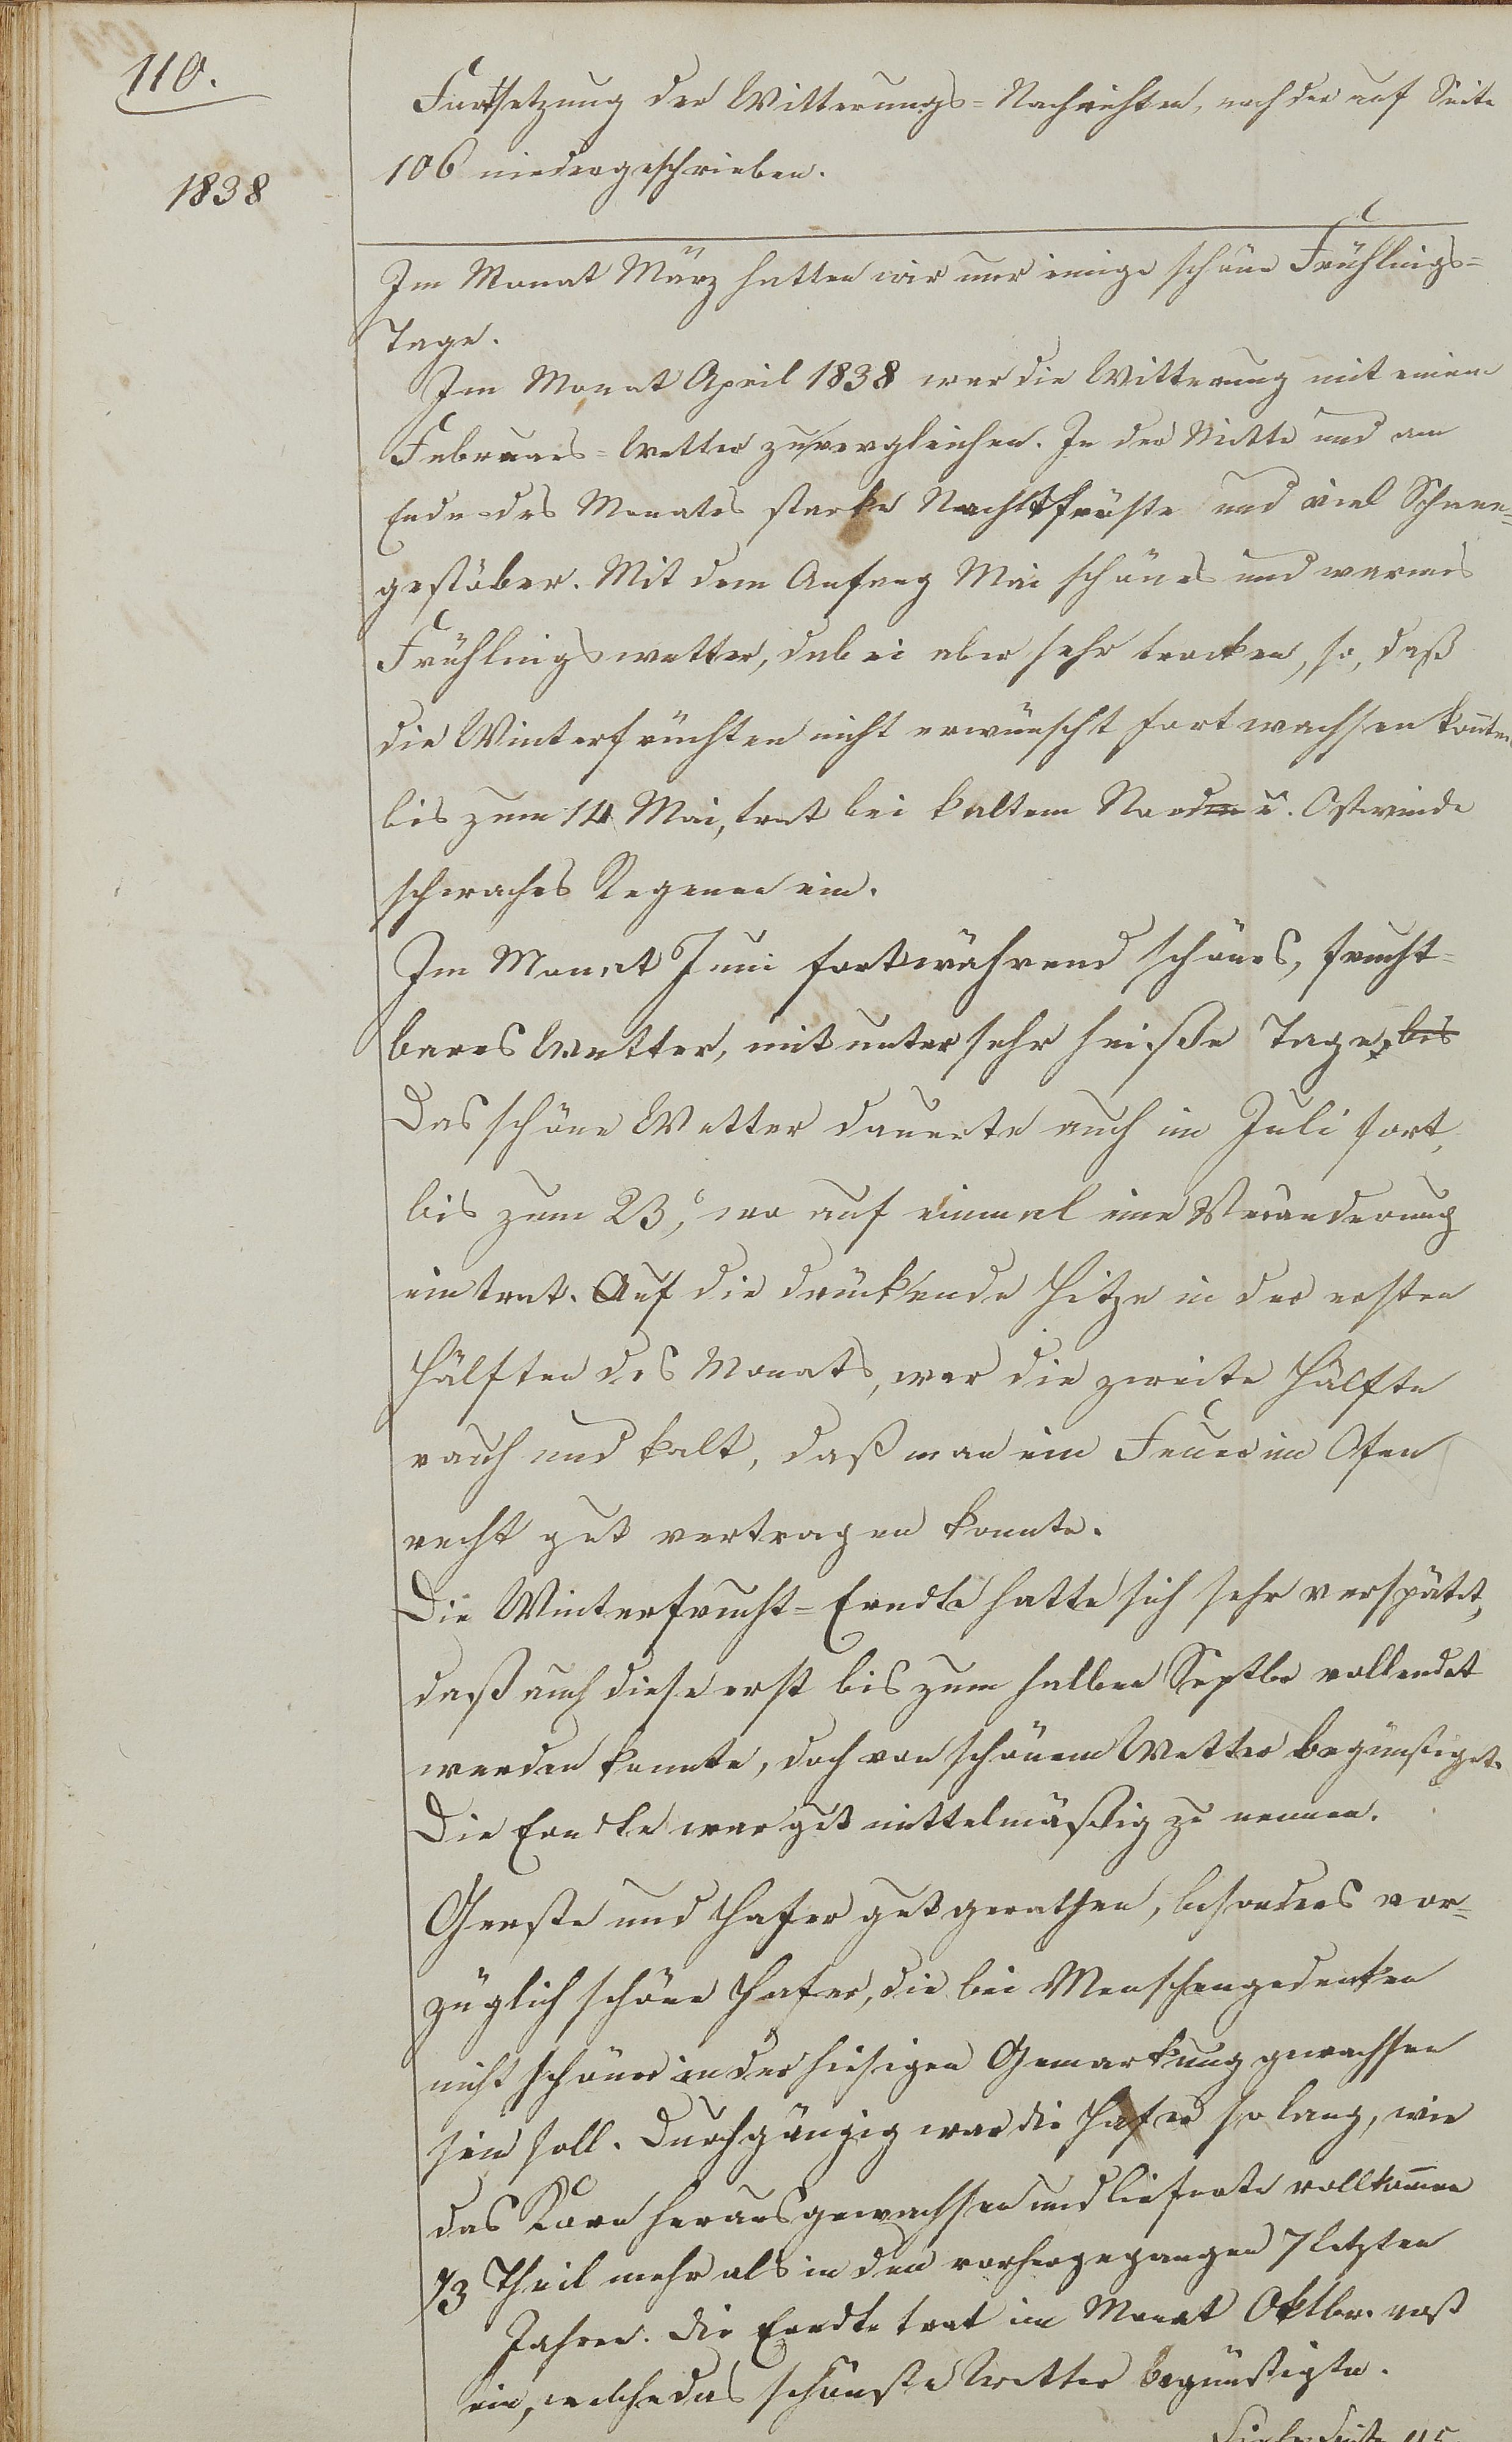 110.
1838
Fortsetzung der Witterungs=Nachrichten, nach der auf Seite
106 niedergeschrieben.
Im Monat März hatten wir nur einige schöne Frühlings=
Tage.
Im Monat April 1838 war die Witterung mit einem
Februars=Wetter zu vergleichen. In der Mitte und am
Ende des Monates starke Nachtfröste und viel Schnee=
gestöber. Mit dem Anfang Mai schönes und warmes
Frühlingswetter, dabei aber sehr trocken, so, daß
die Winterfrüchten nicht erwünscht fortwachsen konten
bis zum 14 Mai, trat bei kaltem Nord u. Ostwinde
schwaches Regenen ein.
Im Monat Juni fortwährend schönes, frucht=
bares Wetter, mitunter sehr heiße Tage, bis
Das schöne Wetter dauerte auch im Juli fort,
bis zum 23, wo auf einmal eine Veränderung
eintrat. Auf die drückende Hitze in der ersten
Hälften des Monats, war die zweite Hälfte
rauh und kalt, daß man ein Feuer im Ofen
recht gut vertragen konnte.
Die Winterfrucht=Erndte hatte sich sehr verspätet,
daß auch diese erst bis zum halben Septbr vollendet
werden konnte, doch von schönem Wetter begünstiget.
Die Erndte war gut mittelmäßig zu nennen.
Gerste und Hafer gut gerathen, besonders vor=
züglich schöne Hafer, die bei Menschengedenken
nicht schöner in der hiesigen Gemarkung gewachsen
sein soll. Durchgängig war die Hafer so lang, wie
das Korn herausgewachsen und lieferte vollkomen
1/3 Theil mehr als in den vorhergegangen 7 letzten
Jahren. Die Erndte trat im Monat Oktbr. erst
ein, welche das schönste Wetter begünstigte.
Siehe Seite 115